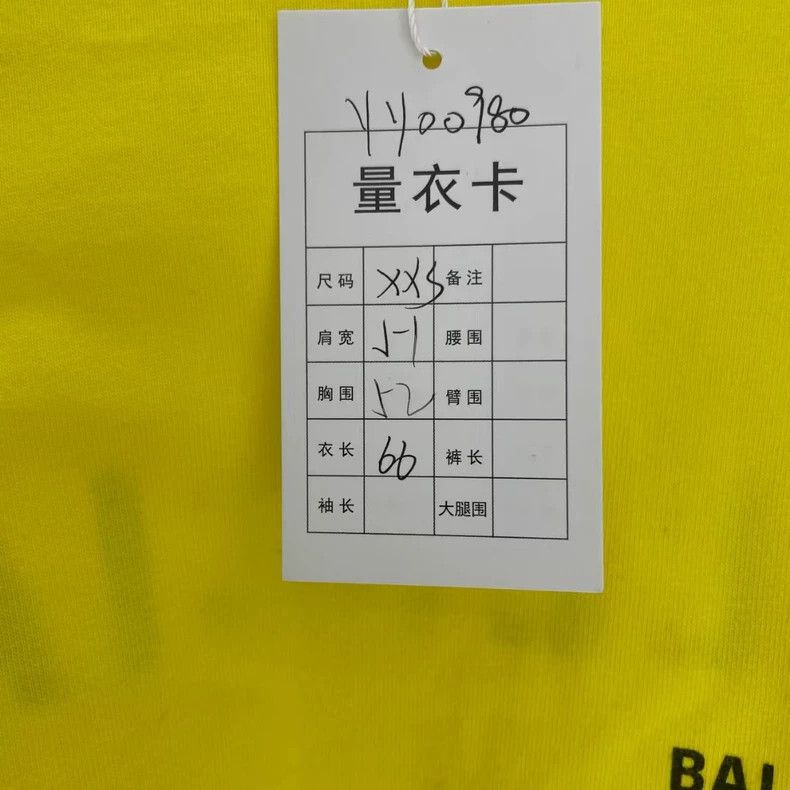 YY00980
量衣卡
尺码 XXS 备注
肩宽 51 腰围
胸围 52 臂围
衣长 66 裤长
袖长 大腿围